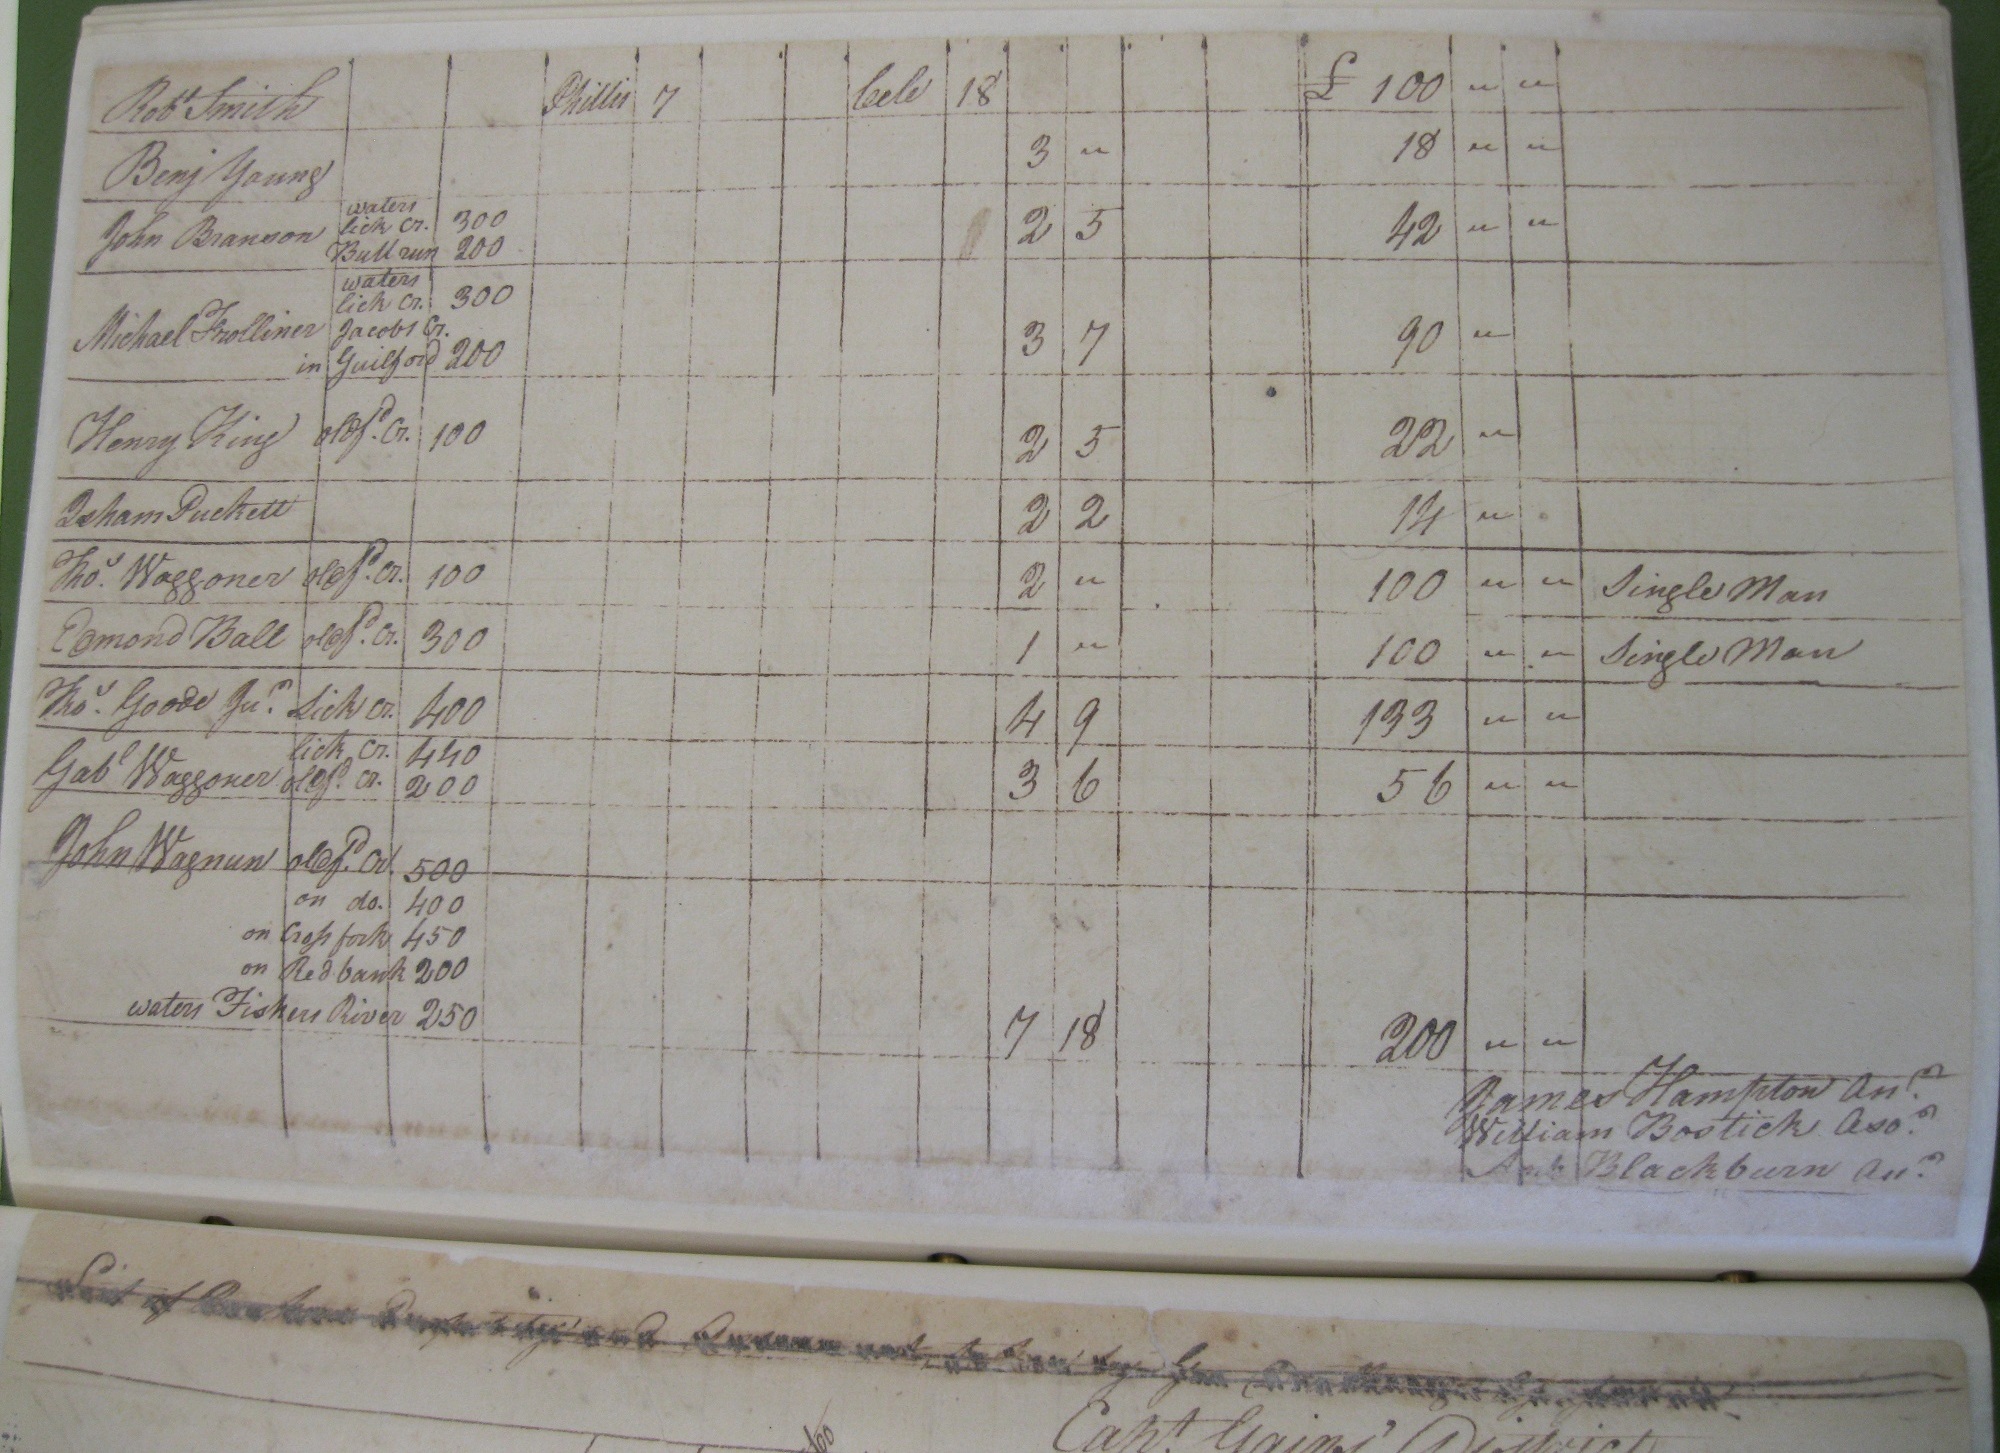 Robt Smith Phillis 7 Cele 18 £ 100 " "
Benj Young 3 " 18 " "
waters
John Branson lick Cr. 300 2 5 42 " "
Bull run 200
waters
lick Cr. 300
Michael Frolliner Jacobs Cr. 3 7 90 "
in Guilford 200
Henry King oldfd. Cr. 100 2 5 22 "
Isham Puckett 2 2 14 "
Thos. Waggoner oldfd. Cr. 100 2 " 100 " " Single Man
Edmond Ball oldfd. Cr. 300 1 " 100 " " Single Man
Thos. Goode Jur. Lick Cr. 400 4 9 133 " "
lick Cr. 440
Gabl Waggoner oldfd. Cr. 200 3 6 56 " "
John Wagnun oldfd. Cr. 500
on do. 400
on Cross fork 450
on Redbank 200
waters Fishers River 250 7 18 200 " "
James Hampton
William Bostick
Blackburn
List of
Capt. Gains' District